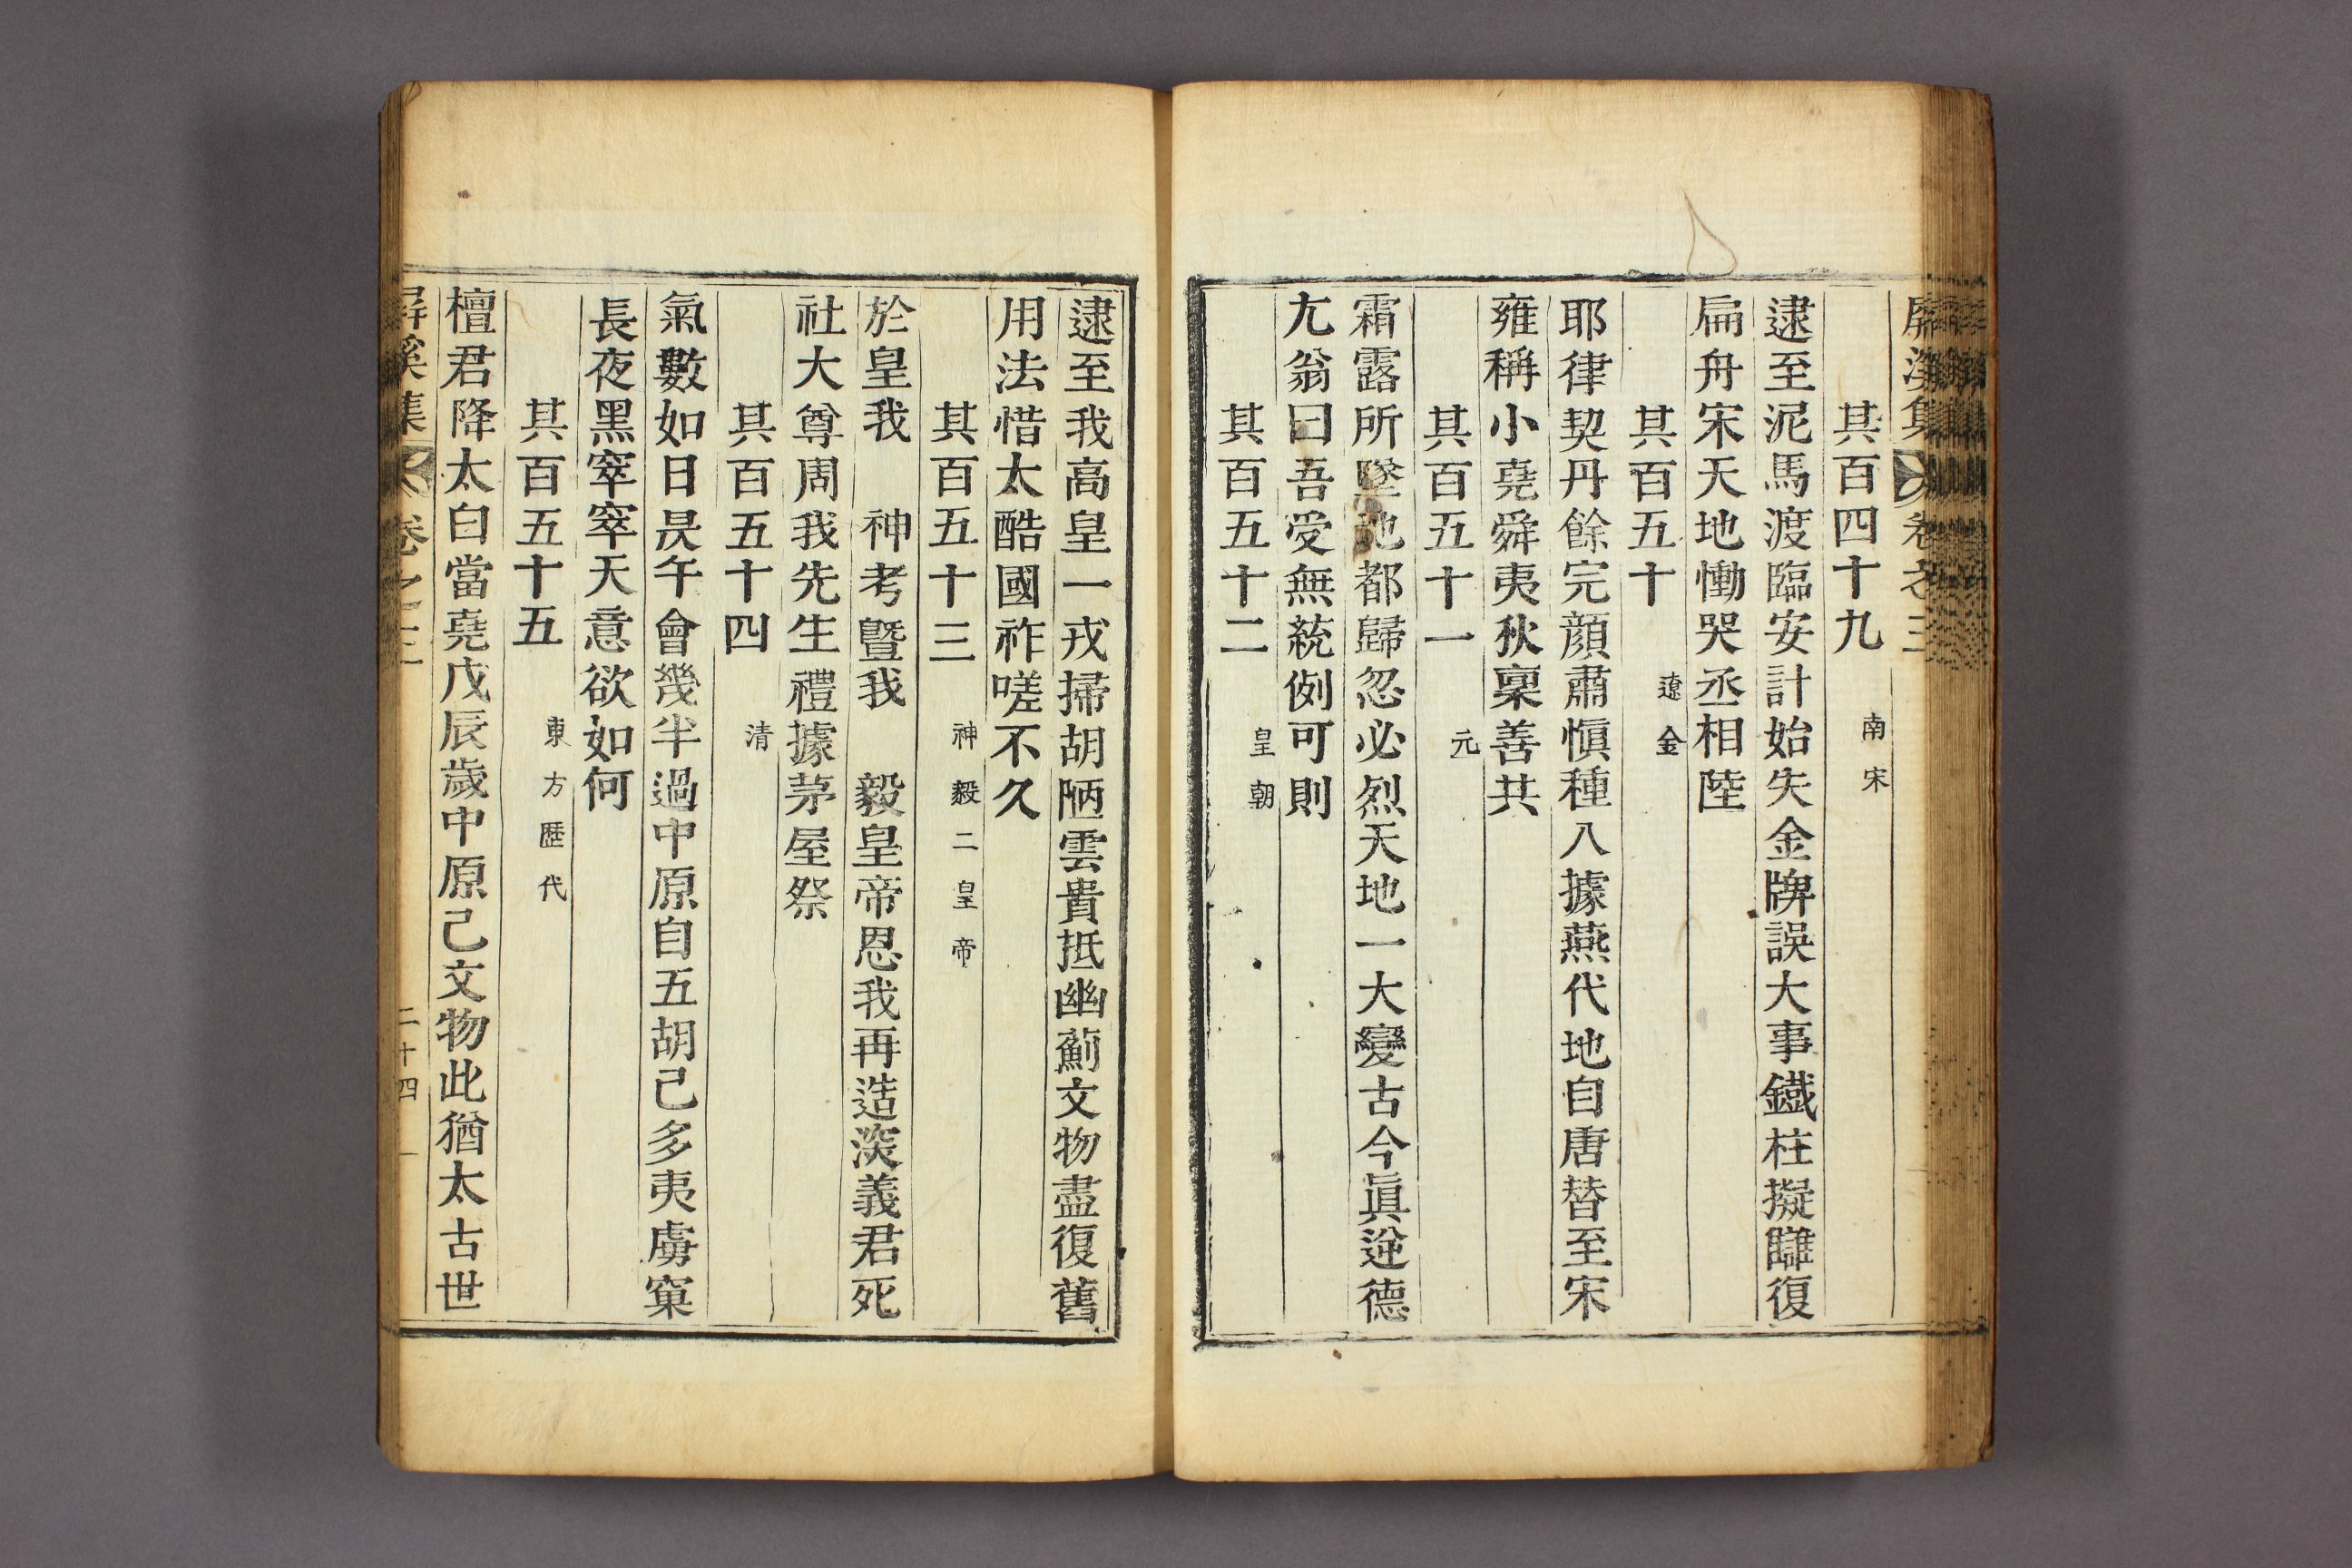 屏溪集 卷之三
其百四十九 南宋
逮至泥馬渡臨安計始失金牌誤大事鐵柱擬讎復
扁舟宋天地慟哭丞相陸
其百五十 遼金
耶律契丹餘完顔肅愼種八據燕代地自唐替至宋
雍稱小堯舜夷狄稟善共
其百五十一 元
霜露所墜地都歸忽必烈天地一大變古今眞逆德
尢翁曰吾受無統例可則
其百五十二 皇朝
逮至我高皇一戎掃胡陋雲貴抵幽薊文物盡復舊
用法惜太酷國祚嗟不久
其百五十三 神毅二皇帝
於皇我 神考曁我 毅皇帝恩我再造深義君死
社大尊周我先生禮據茅屋祭
其百五十四 清
氣數如日昃午會幾半過中原自五胡己多夷虜窠
長夜黑窣窣天意欲如何
其百五十五 東方歷代
檀君降太白當堯戊辰歲中原己文物此猶太古世
屏溪集 卷之三 二十四